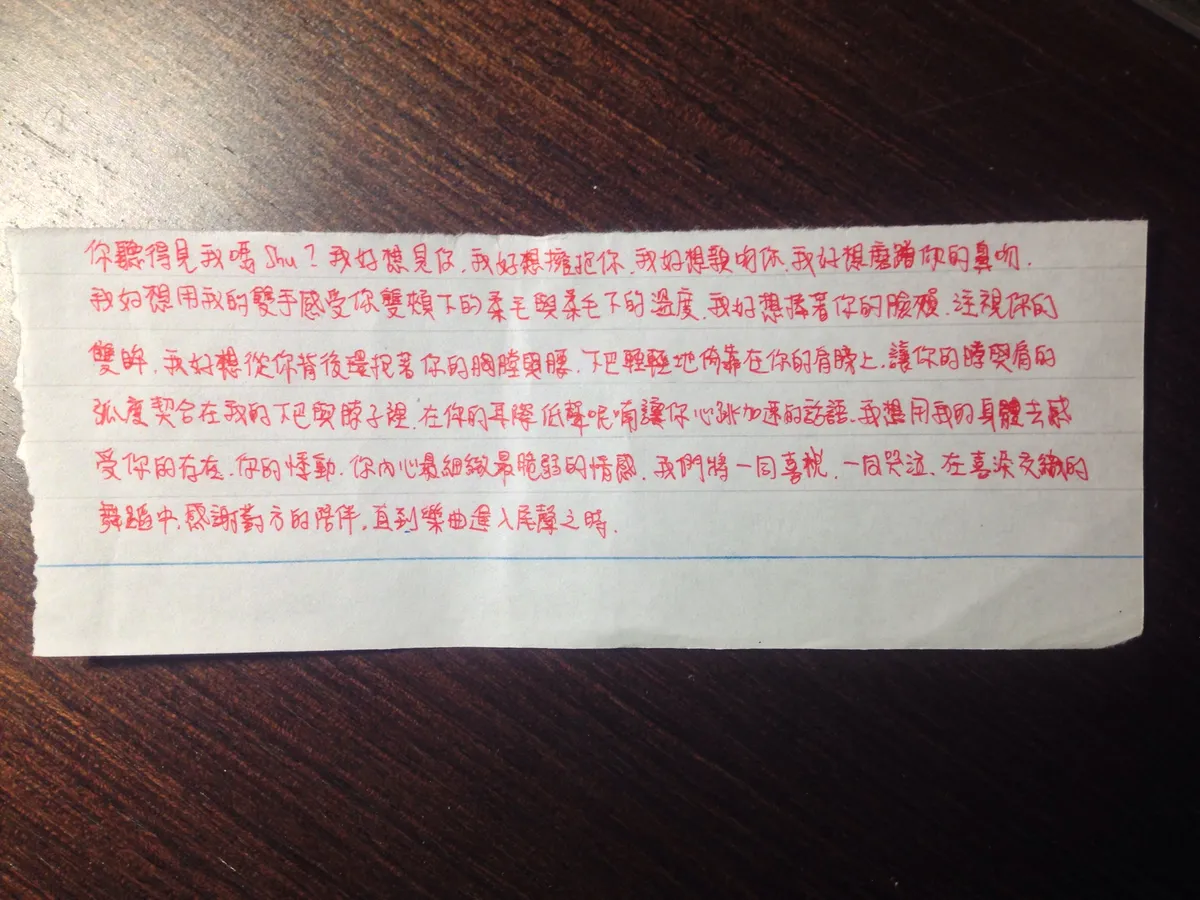 你聽得見我嗎 Shu？我好想見你，我好想擁抱你，我好想親吻你，我好想磨蹭你的鼻吻，
我好想用我的雙手感受你雙頰下的柔毛與柔毛下的溫度，我好想捧著你的臉頰，注視你的
雙眸，我好想從你背後環抱著你的胸膛與腰，下巴輕輕地倚靠在你的肩膀上，讓你的膛與肩的
弧度契合在我的下巴與脖子裡，在你的耳際低聲呢喃讓你心跳加速的話語，我想用我的身體去感
受你的存在，你的悸動，你內心最細緻最脆弱的情感，我們將一同喜悅，一同哭泣，在喜淚交織的
舞蹈中，感謝對方的陪伴，直到樂曲進入尾聲之時。